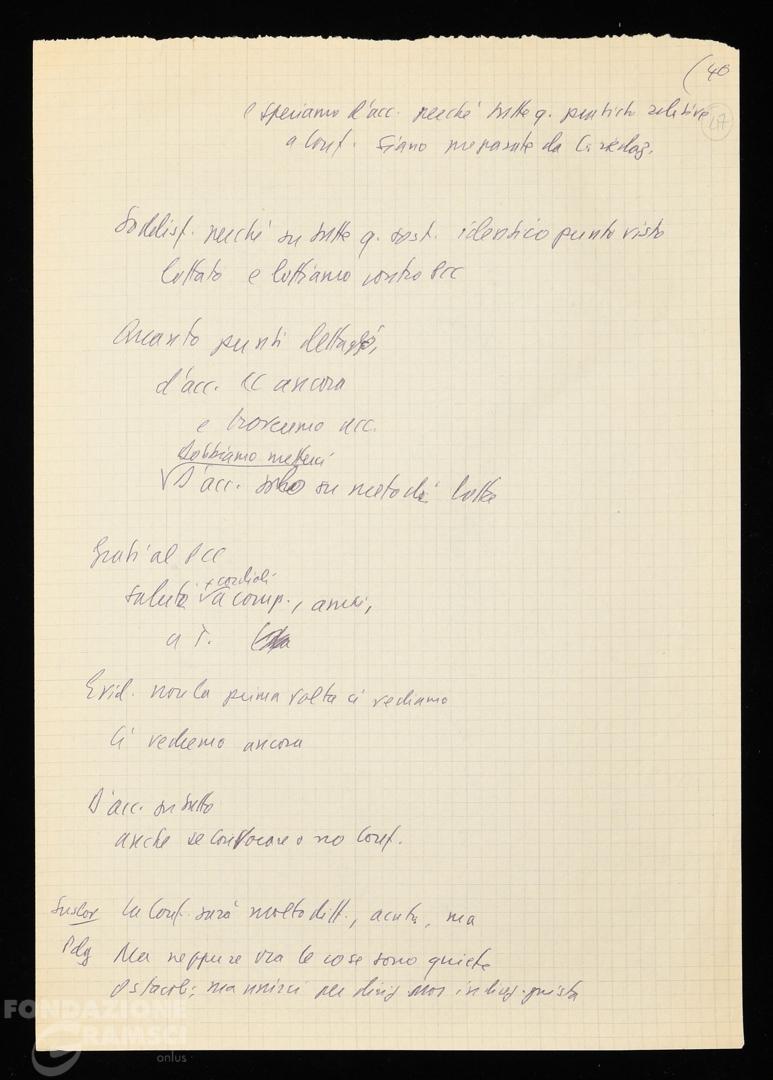 (40
e speriamo d'acc. perché tutte q. pratiche relative
47
a Conf. siano preparate da C. redaz.
Soddisf. perché su tutte q. sost. identico punto vista
lottato e lottiamo contro PCC
Quanto punti dettagli,
d'acc. CC ancora
e troveremo acc.
Dobbiamo metterci
D'acc. solo su metodi lotta
Grati al PCC
+ cordiali
saluti a comp., amici,
a T.
Evid. non la prima volta ci vediamo
Ci vedremo ancora
D'acc. su tutto
anche se convocare o no Conf.
Suslov La Conf. sarà molto diff., acuta, ma
Pdg Ma neppure ora le cose sono quiete
Ostacoli; ma unirci per dirig. mov. in giusta
FONDAZIONE
GRAMSCI
onlus